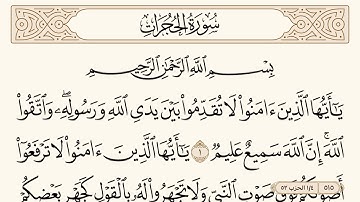 سُورَةُ الْحُجُرَاتِ
بِسْمِ اللَّهِ الرَّحْمَٰنِ الرَّحِيمِ
يَٰٓأَيُّهَا ٱلَّذِينَ ءَامَنُوا۟ لَا تُقَدِّمُوا۟ بَيْنَ يَدَىِ ٱللَّهِ وَرَسُولِهِۦ ۖ وَٱتَّقُوا۟
ٱللَّهَ ۚ إِنَّ ٱللَّهَ سَمِيعٌ عَلِيمٌ ١ يَٰٓأَيُّهَا ٱلَّذِينَ ءَامَنُوا۟ لَا تَرْفَعُوٓا۟
أَصْوَٰتَكُمْ فَوْقَ صَوْتِ ٱلنَّبِىِّ وَلَا تَجْهَرُوا۟ لَهُۥ بِٱلْقَوْلِ كَجَهْرِ بَعْضِكُمْ
٥١٥ ١/٤ الحزب ٥٢